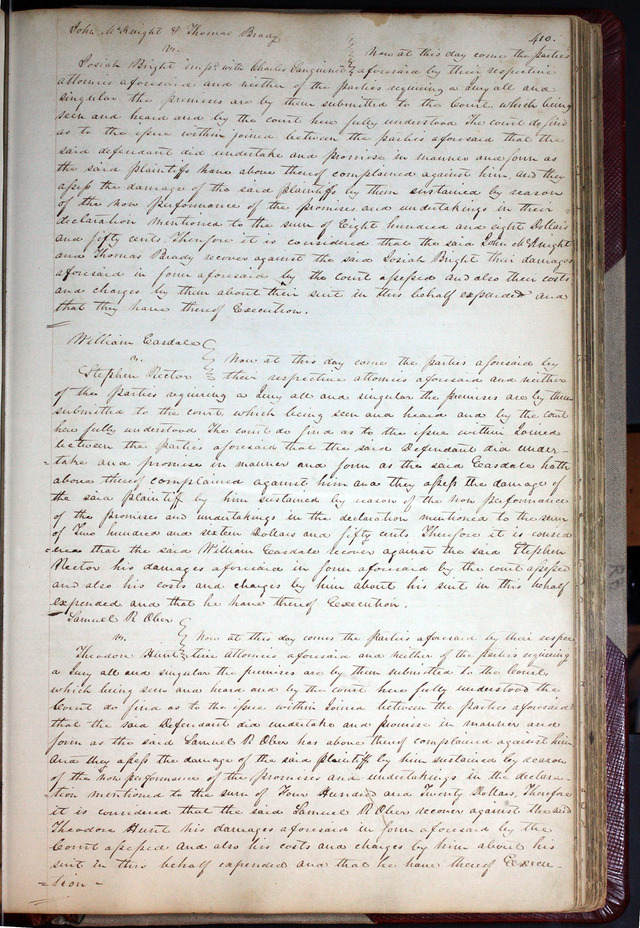 410.
John McKnight & Thomas Brady
vs. Now at this day come the parties
Josiah Bright imp.d with Charles Sanguinet aforesaid by their respective
attornies aforesaid and neither of the parties requiring a Jury all and
singular the premises are by them submitted to the Court, which being
seen and heard and by the court here fully understood The court do find
as to the issue within joined between the parties aforesaid that the
said defendant did undertake and promise in manner and form as
the said plaintiffs have above thereof complained against him, and they
assess the damage of the said plaintiffs by them sustained by reason
of the non performance of the promises and undertakings in their
declaration mentioned to the sum of Eight hundred and eight Dollars
and fifty cents. Therefore it is considered that the said John McKnight
and Thomas Brady recover against the said Josiah Bright their damages
aforesaid in form aforesaid by the court assessed and also their costs
and charges by them about their suit in this behalf expended and
that they have thereof Execution.
William Easdale
vs. Now at this day come the parties aforesaid by
Stephen Rector their respective attornies aforesaid and neither
of the parties requiring a Jury all and singular the premises are by them
submitted to the court, which being seen and heard and by the court
here fully understood The court do find as to the issue within Joined
between the parties aforesaid that the said Defendant did under-
take and promise in manner and form as the said Easdale hath
above thereof complained against him and they assess the damage of
the said plaintiff by him sustained by reason of the non performance
of the promises and undertakings in the declaration mentioned to the sum
of Two hundred and sixteen Dollars and fifty cents. Therefore it is consid
ered that the said William Easdale recover against the said Stephen
Rector his damages aforesaid in form aforesaid by the court assessed
and also his costs and charges by him about his suit in this behalf
expended and that he have thereof Execution.
Samuel R Ober
vs. Now at this day comes the parties aforesaid by their respec
Theodore Hunt tive attornies aforesaid and neither of the parties requiring
a Jury all and singular the premises are by them submitted to the Court,
which being seen and heard and by the court here fully understood the
Court do find as to the issue within Joined between the parties aforesaid
that the said Defendant did undertake and promise in manner and
form as the said Samuel R Ober has above thereof complained against him
And they assess the damage of the said plaintiff by him sustained by reason
of the non performance of the promises and undertakings in the declara-
tion mentioned to the sum of Four Hundred and Twenty Dollars, Therefore
it is considered that the said Samuel R Ober recover against the said
Theodore Hunt his damages aforesaid in form aforesaid by the
Court assessed and also his costs and charges by him about his
suit in this behalf expended and that he have thereof Execu-
-tion-